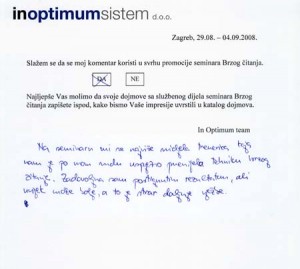 inoptimumsistem d.o.o.
Zagreb, 29.08. – 04.09.2008.
Slažem se da se moj komentar koristi u svrhu promocije seminara Brzog čitanja.
DA NE
Najljepše Vas molimo da svoje dojmove sa službenog dijela seminara Brzog
čitanja zapišete ispod, kako bismo Vaše impresije uvrstili u katalog dojmova.
In Optimum team
Na seminaru mi se najviše svidjela mentorica koja
nam je po mom sudu uspješno prenijela tehniku brzog
čitanja. Zadovoljna sam postignutim rezultatom, ali
uvijek može bolje, a to je stvar daljnje vježbe.